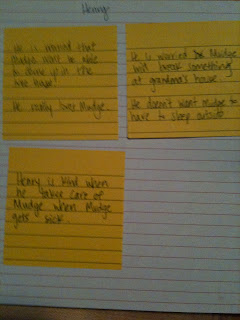 Henry
He is worried that
Mudge won't be able
to
in the
He really loves Mudge.
He is worried Mudge
will break something
at grandma's house
He doesn't want mudge to
have to sleep outside
Henry is kind when
he takes care of
Mudge when Mudge
gets sick.